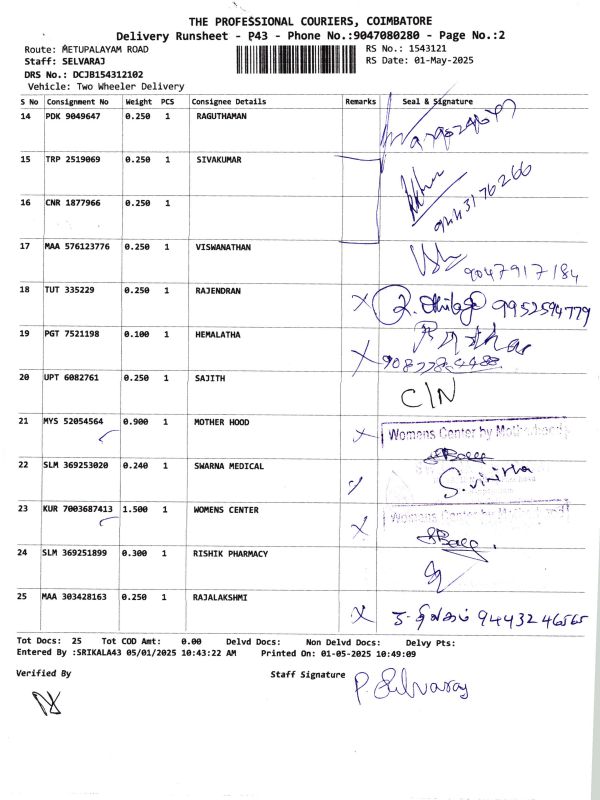 THE PROFESSIONAL COURIERS, COIMBATORE
Delivery Runsheet - P43 - Phone No.:9047080280 - Page No.:2
Route: METUPALAYAM ROAD RS No.: 1543121
Staff: SELVARAJ RS Date: 01-May-2025
DRS No.: DCJB154312102
Vehicle: Two Wheeler Delivery
S No Consignment No Weight PCS Consignee Details Remarks Seal & Signature
14 PDK 9049647 0.250 1 RAGUTHAMAN
15 TRP 2519069 0.250 1 SIVAKUMAR
16 CNR 1877966 0.250 1 9443176266
17 MAA 576123776 0.250 1 VISWANATHAN 9047917184
18 TUT 335229 0.250 1 RAJENDRAN X 9952594779
19 PGT 7521198 0.100 1 HEMALATHA X
20 UPT 6082761 0.250 1 SAJITH C/N
21 MYS 52054564 0.900 1 MOTHER HOOD X Womens Center by Motherhood
22 SLM 369253020 0.240 1 SWARNA MEDICAL
23 KUR 7003687413 1.500 1 WOMENS CENTER X Womens Center by Motherhood
24 SLM 369251899 0.300 1 RISHIK PHARMACY
25 MAA 303428163 0.250 1 RAJALAKSHMI X 9443246565
Tot Docs: 25 Tot COD Amt: 0.00 Delvd Docs: Non Delvd Docs: Delvy Pts:
Entered By :SRIKALA43 05/01/2025 10:43:22 AM Printed On: 01-05-2025 10:49:09
Verified By Staff Signature P. Selvaraj